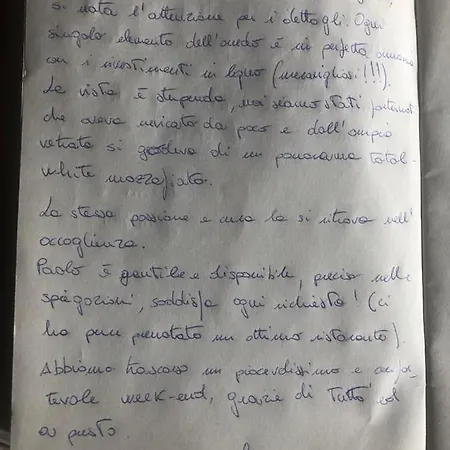 si nota l'attenzione per i dettagli. Ogni
singolo elemento dell'arredo è in perfetta armonia
con i rivestimenti in legno (meravigliosi!!!).
La vista è stupenda, noi siamo stati fortunati
che aveva nevicato da poco e dall'ampia
vetrata si godeva di un panorama total-
white mozzafiato.
La stessa passione e cura la si ritrova nell'
accoglienza.
Paolo è gentile e disponibile, preciso nelle
spiegazioni, soddisfa ogni richiesta! (ci
ha pure prenotato un ottimo ristorante).
Abbiamo trascorso un piacevolissimo e
week-end, grazie di tutto ed
a presto.